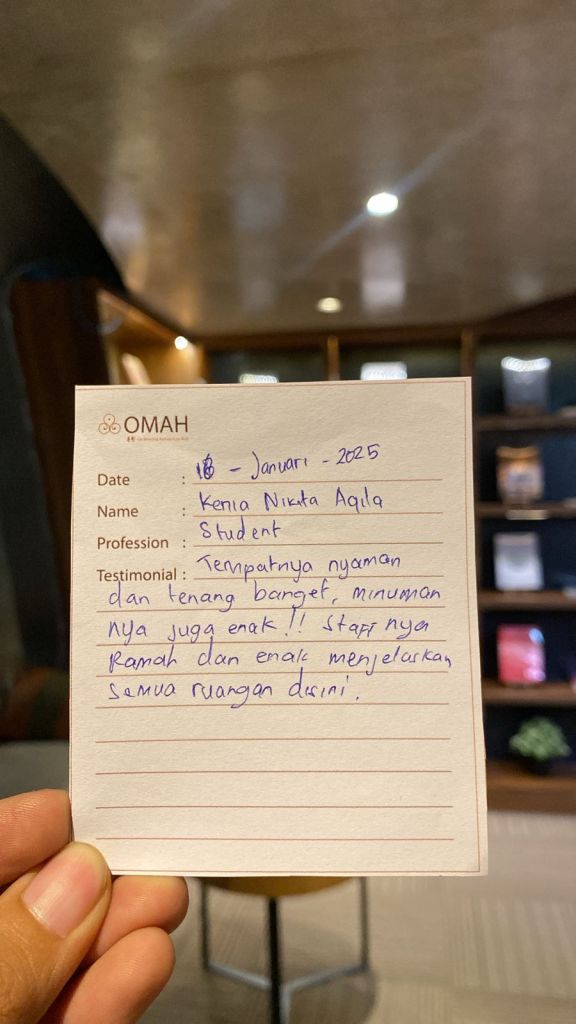 OMAH
Date : 18 - Januari - 2025
Name : Kenia Nikita Aqila
Profession : Student
Testimonial : Tempatnya nyaman
dan tenang banget, minuman
nya juga enak!! Staff nya
Ramah dan enak menjelaskan
Semua ruangan disini.